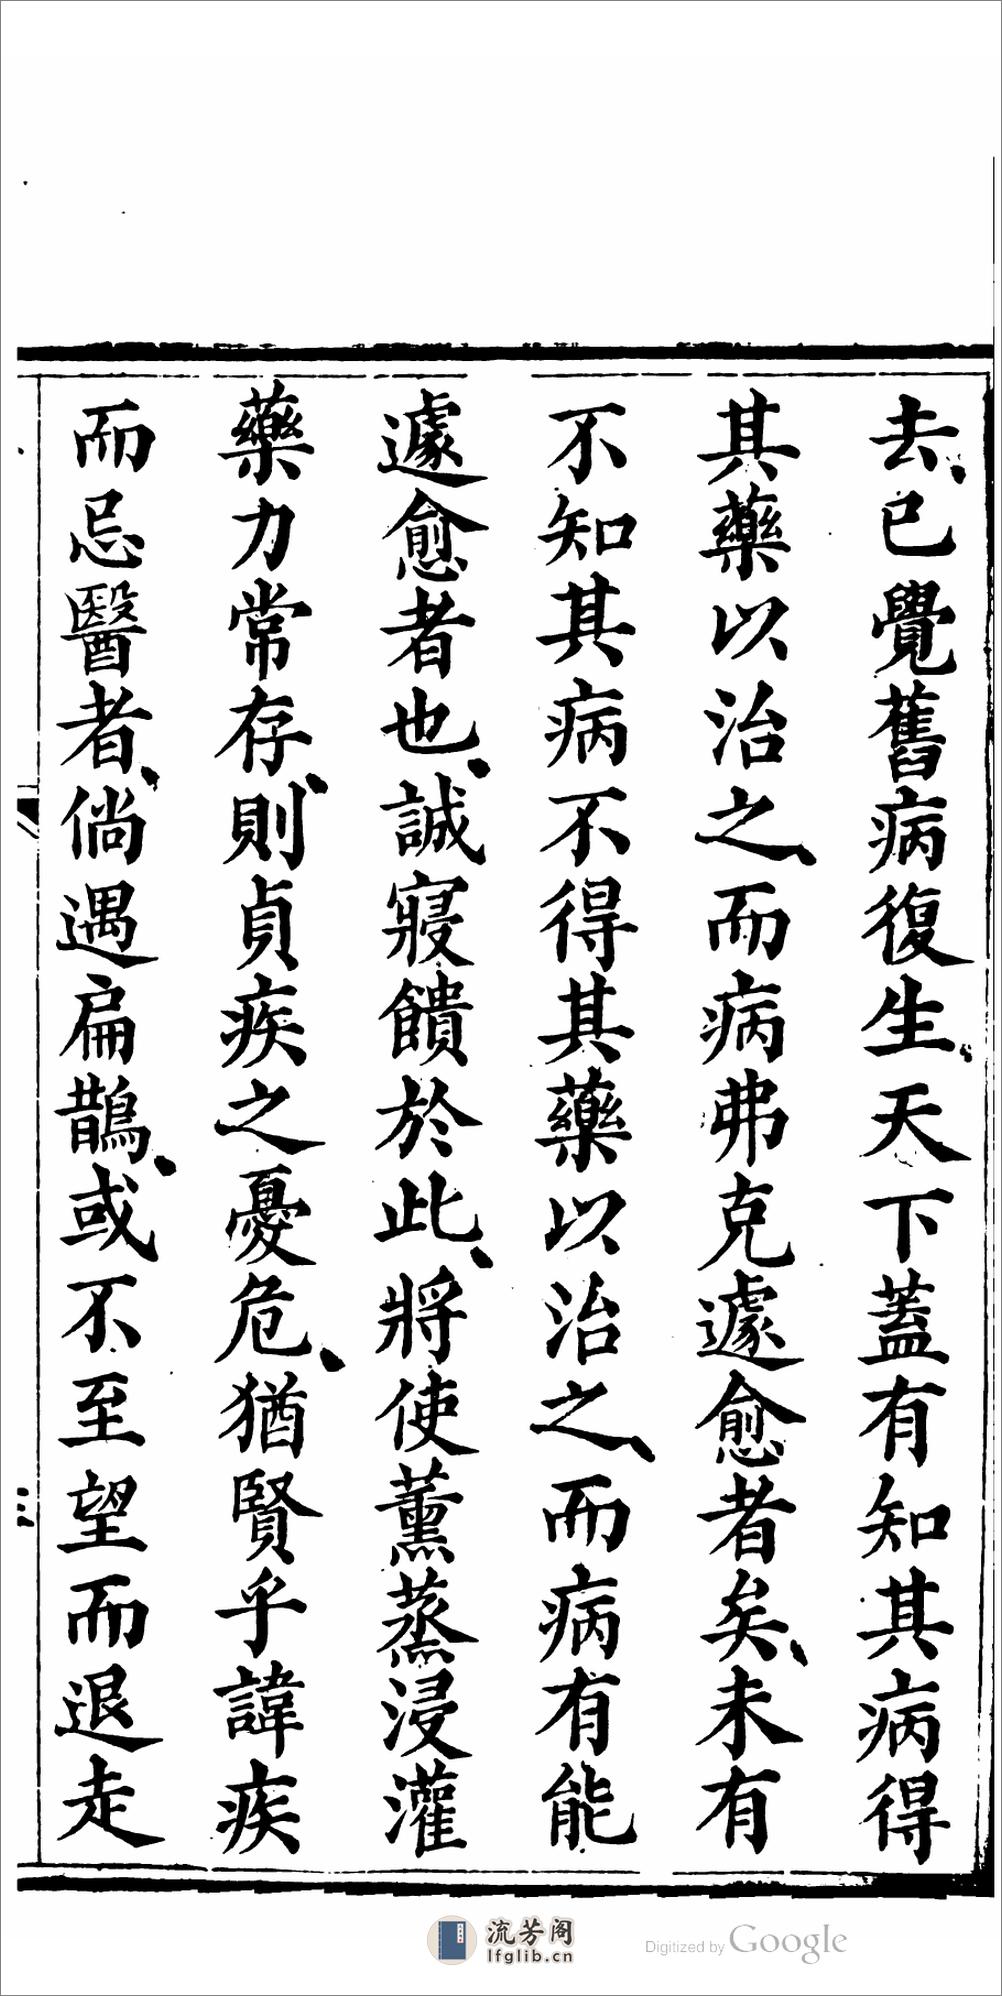 去、已覺舊病復生、天下蓋有知其病得
其藥以治之、而病弗克遽愈者矣、未有
不知其病不得其藥以治之、而病有能
遽愈者也、誠寢饋於此、將使薰蒸浸灌
藥力常存、則貞疾之憂危、猶賢乎諱疾
而忌醫者、倘遇扁鵲、或不至望而退走
流芳阁
lfglib.cn
Digitized by Google